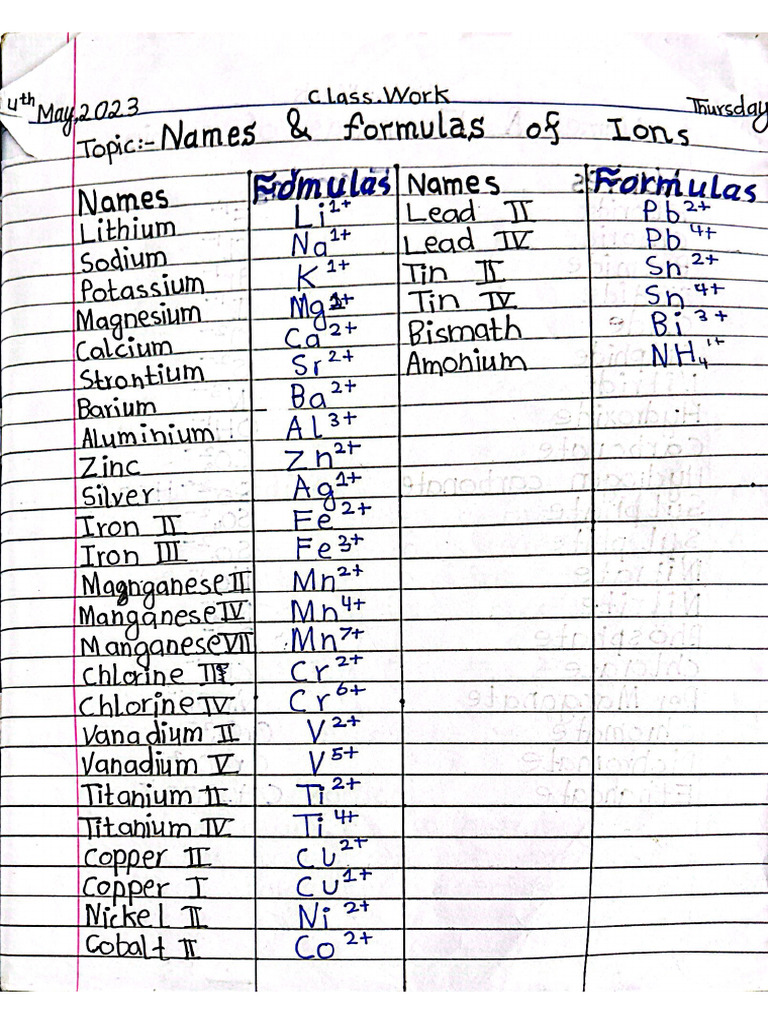 4th May, 2023 Class.Work Thursday
Topic:- Names & formulas of Ions
Names Fomulas Names Formulas
Lithium Li1+ Lead II Pb2+
Sodium Na1+ Lead IV Pb4+
Potassium K1+ Tin II Sn2+
Magnesium Mg2+ Tin IV Sn4+
Calcium Ca2+ Bismath Bi3+
Strontium Sr2+ Amonium NH4 1+
Barium Ba2+
Aluminium Al3+
Zinc Zn2+
Silver Ag1+
Iron II Fe2+
Iron III Fe3+
Magnganese II Mn2+
Manganese IV Mn4+
Manganese VII Mn7+
Chlorine II Cr2+
Chlorine IV Cr6+
Vanadium II V2+
Vanadium V V5+
Titanium II Ti2+
Titanium IV Ti4+
Copper II Cu2+
Copper I Cu1+
Nickel II Ni2+
Cobalt II Co2+